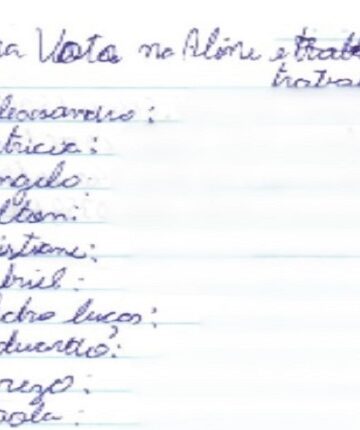 ra Vota na Aline e
leosandro:
tricia:
ngelo:
lton:
istiane:
briel:
dro lucas:
duardo:
rezo:
aola: